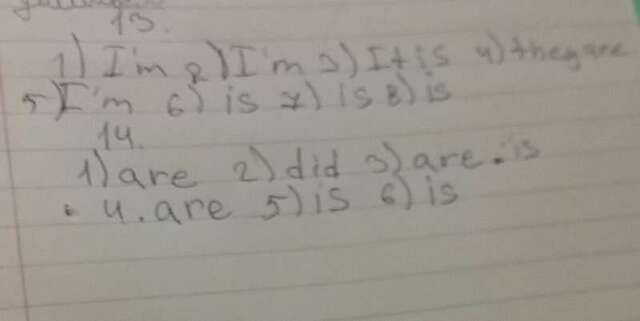 13.
1) I'm 2) I'm 3) It is 4) they are
5) I'm 6) is 7) is 8) is
14.
1) are 2) did 3) are. is
4. are 5) is 6) is